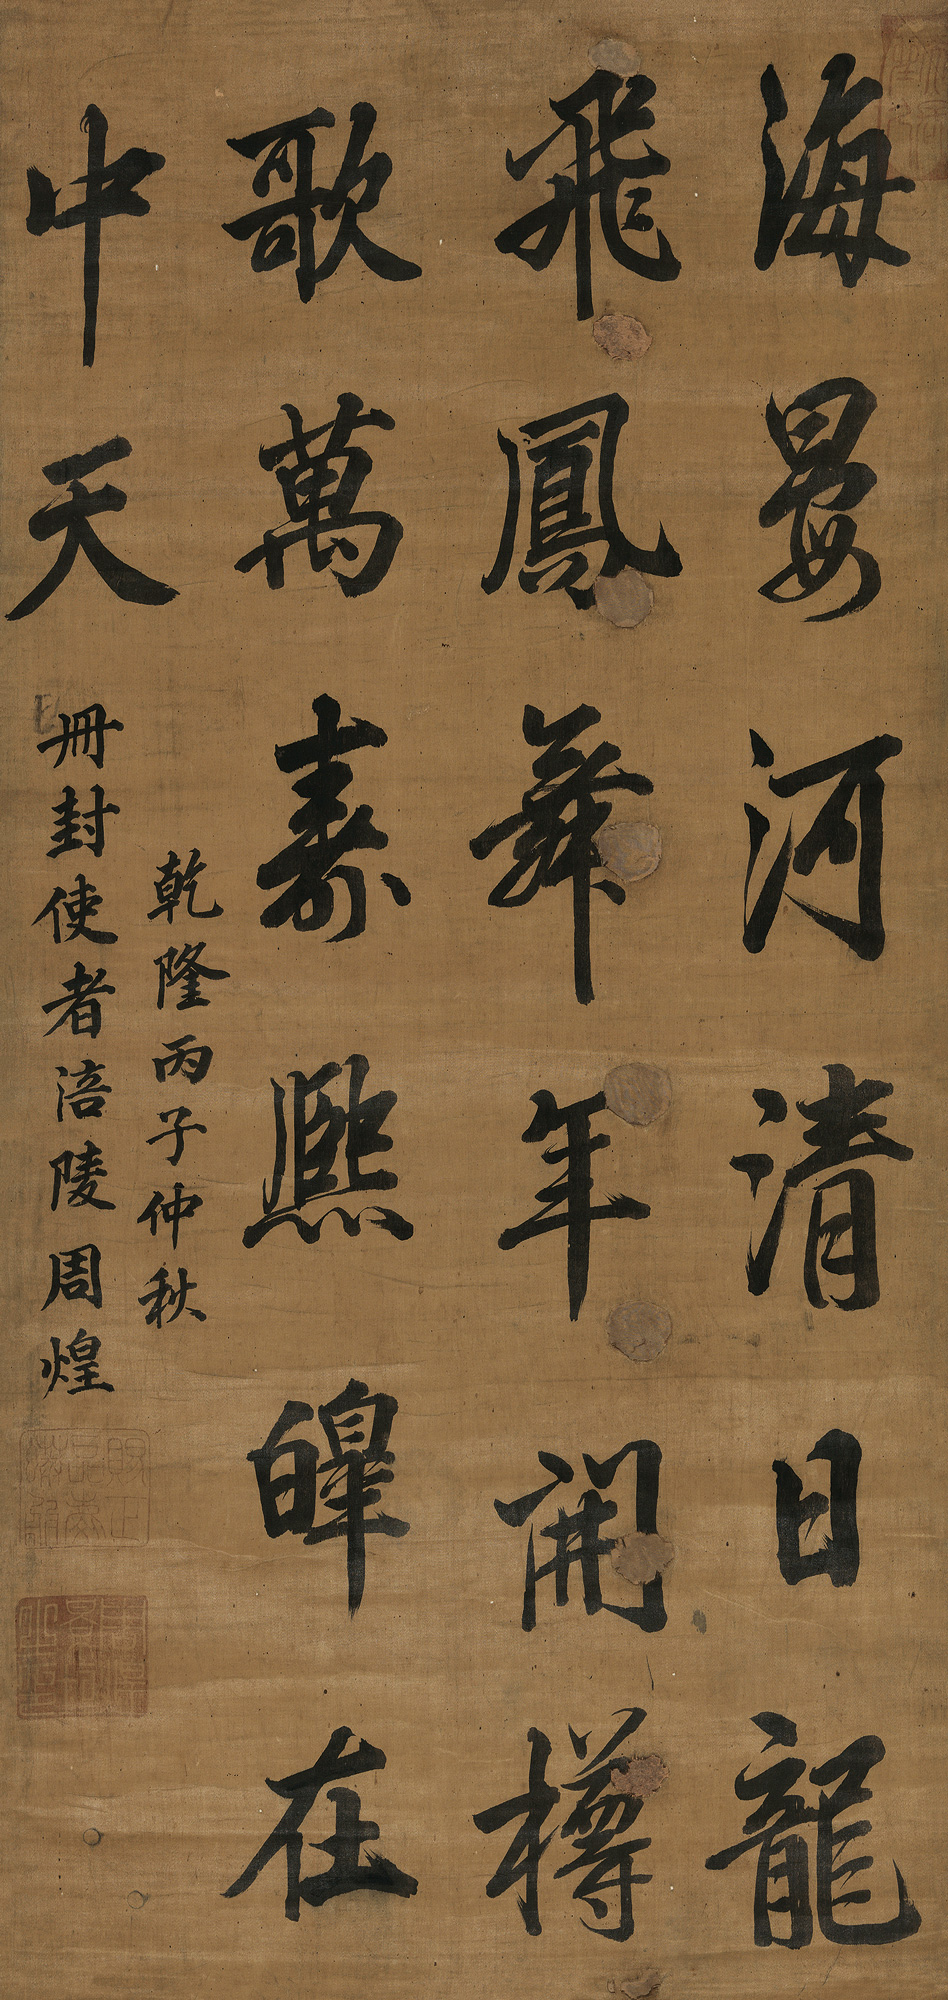 海晏河清日龍
飛鳳舞年開樽
歌萬壽熙皞在
中天
乾隆丙子仲秋
冊封使者涪陵周煌